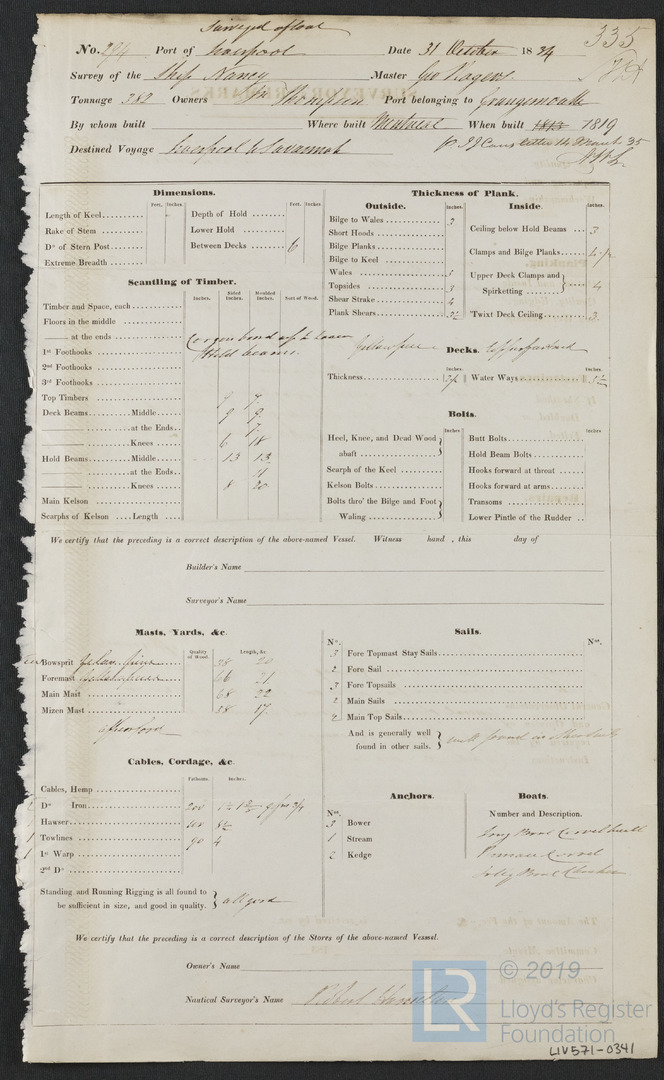 Surveyed afloat
335
No. 294 Port of Liverpool Date 31 October 1834
Survey of the Ship Nancy Master Geo Rogers
Tonnage 382 Owners Thompson Port belonging to Grangemouth
By whom built Where built Montreal When built 1813 1819
Destined Voyage Liverpool to Savannah
Dimensions.
Feet. Inches. Feet. Inches.
Length of Keel Depth of Hold
Rake of Stem Lower Hold
Do of Stern Post Between Decks 6
Extreme Breadth
Scantling of Timber.
Inches. Sided Inches. Moulded Inches. Sort of Wood.
Timber and Space, each
Floors in the middle
at the ends
1st Foothooks
Hold beams
2nd Foothooks
3rd Foothooks
Top Timbers
Deck Beams Middle 9 9
at the Ends 7
Knees 6 18
Hold Beams Middle 13 13
at the Ends 11
Knees 8 20
Main Kelson
Scarphs of Kelson Length
Thickness of Plank.
Outside. Inches. Inside. Inches.
Bilge to Wales 3
Short Hoods Ceiling below Hold Beams 3
Bilge Planks
Bilge to Keel Clamps and Bilge Planks
Wales 5
Topsides 3 Upper Deck Clamps and Spirketting 4
Shear Strake 4
Plank Shears 'Twixt Deck Ceiling 3
Yellow pine Decks.
Inches. Inches.
Thickness Water Ways
Bolts.
Inches Inches
Heel, Knee, and Dead Wood abaft Butt Bolts
Hold Beam Bolts
Scarph of the Keel Hooks forward at throat
Kelson Bolts Hooks forward at arms
Bolts thro' the Bilge and Foot Waling Transoms
Lower Pintle of the Rudder
We certify that the preceding is a correct description of the above-named Vessel. Witness hand, this day of
Builder's Name
Surveyor's Name
Masts, Yards, &c.
Quality of Wood. Length, &c.
Bowsprit Yellow pine 20
Foremast 66 21
Main Mast 68 22
Mizen Mast 58 17
Sails.
No. No.
3 Fore Topmast Stay Sails
2 Fore Sail
3 Fore Topsails
2 Main Sails
2 Main Top Sails
And is generally well found in other sails. well found in
Cables, Cordage, &c.
Fathoms. Inches.
Cables, Hemp
Do Iron 200
Hawser 100
1 Towlines 90 4
1 1st Warp
2nd Do
Standing and Running Rigging is all found to be sufficient in size, and good in quality. all good
Anchors.
No.
3 Bower
1 Stream
2 Kedge
Boats.
Number and Description.
Long Boat Carvel built
Pinnace Carvel
Jolly Boat Clincher
We certify that the preceding is a correct description of the Stores of the above-named Vessel.
Owner's Name
Nautical Surveyor's Name Robert
LR © 2019
Lloyd's Register
Foundation
LIV571-0341